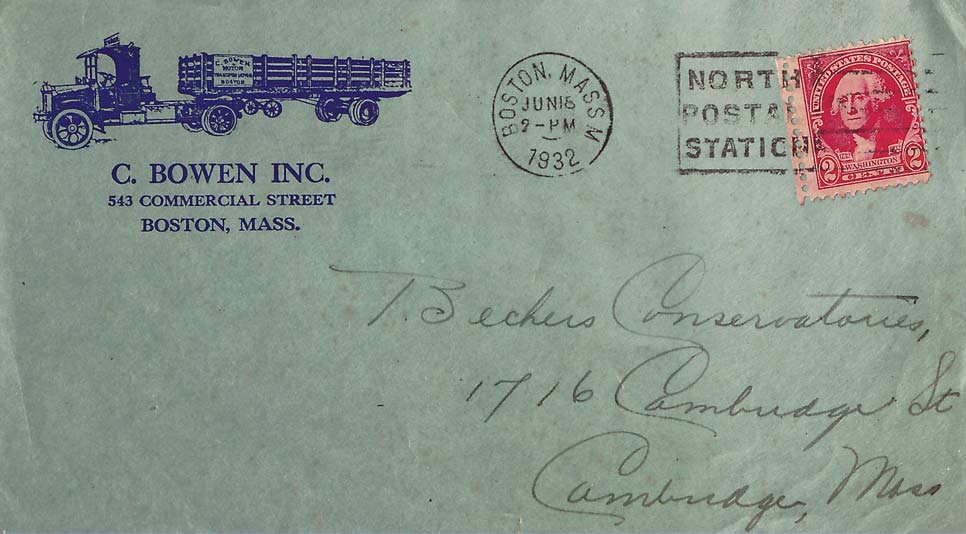 C. BOWEN
MOTOR
TRANSPORTATION
BOSTON
C. BOWEN INC.
543 COMMERCIAL STREET
BOSTON, MASS.
BOSTON, MASS
JUN 16
2-PM
1932
NORTH
POSTAL
STATION
UNITED STATES POSTAGE
1732
WASHINGTON
2 CENTS 2
T. Bechers Conservatories,
1716 Cambridge St
Cambridge, Mass